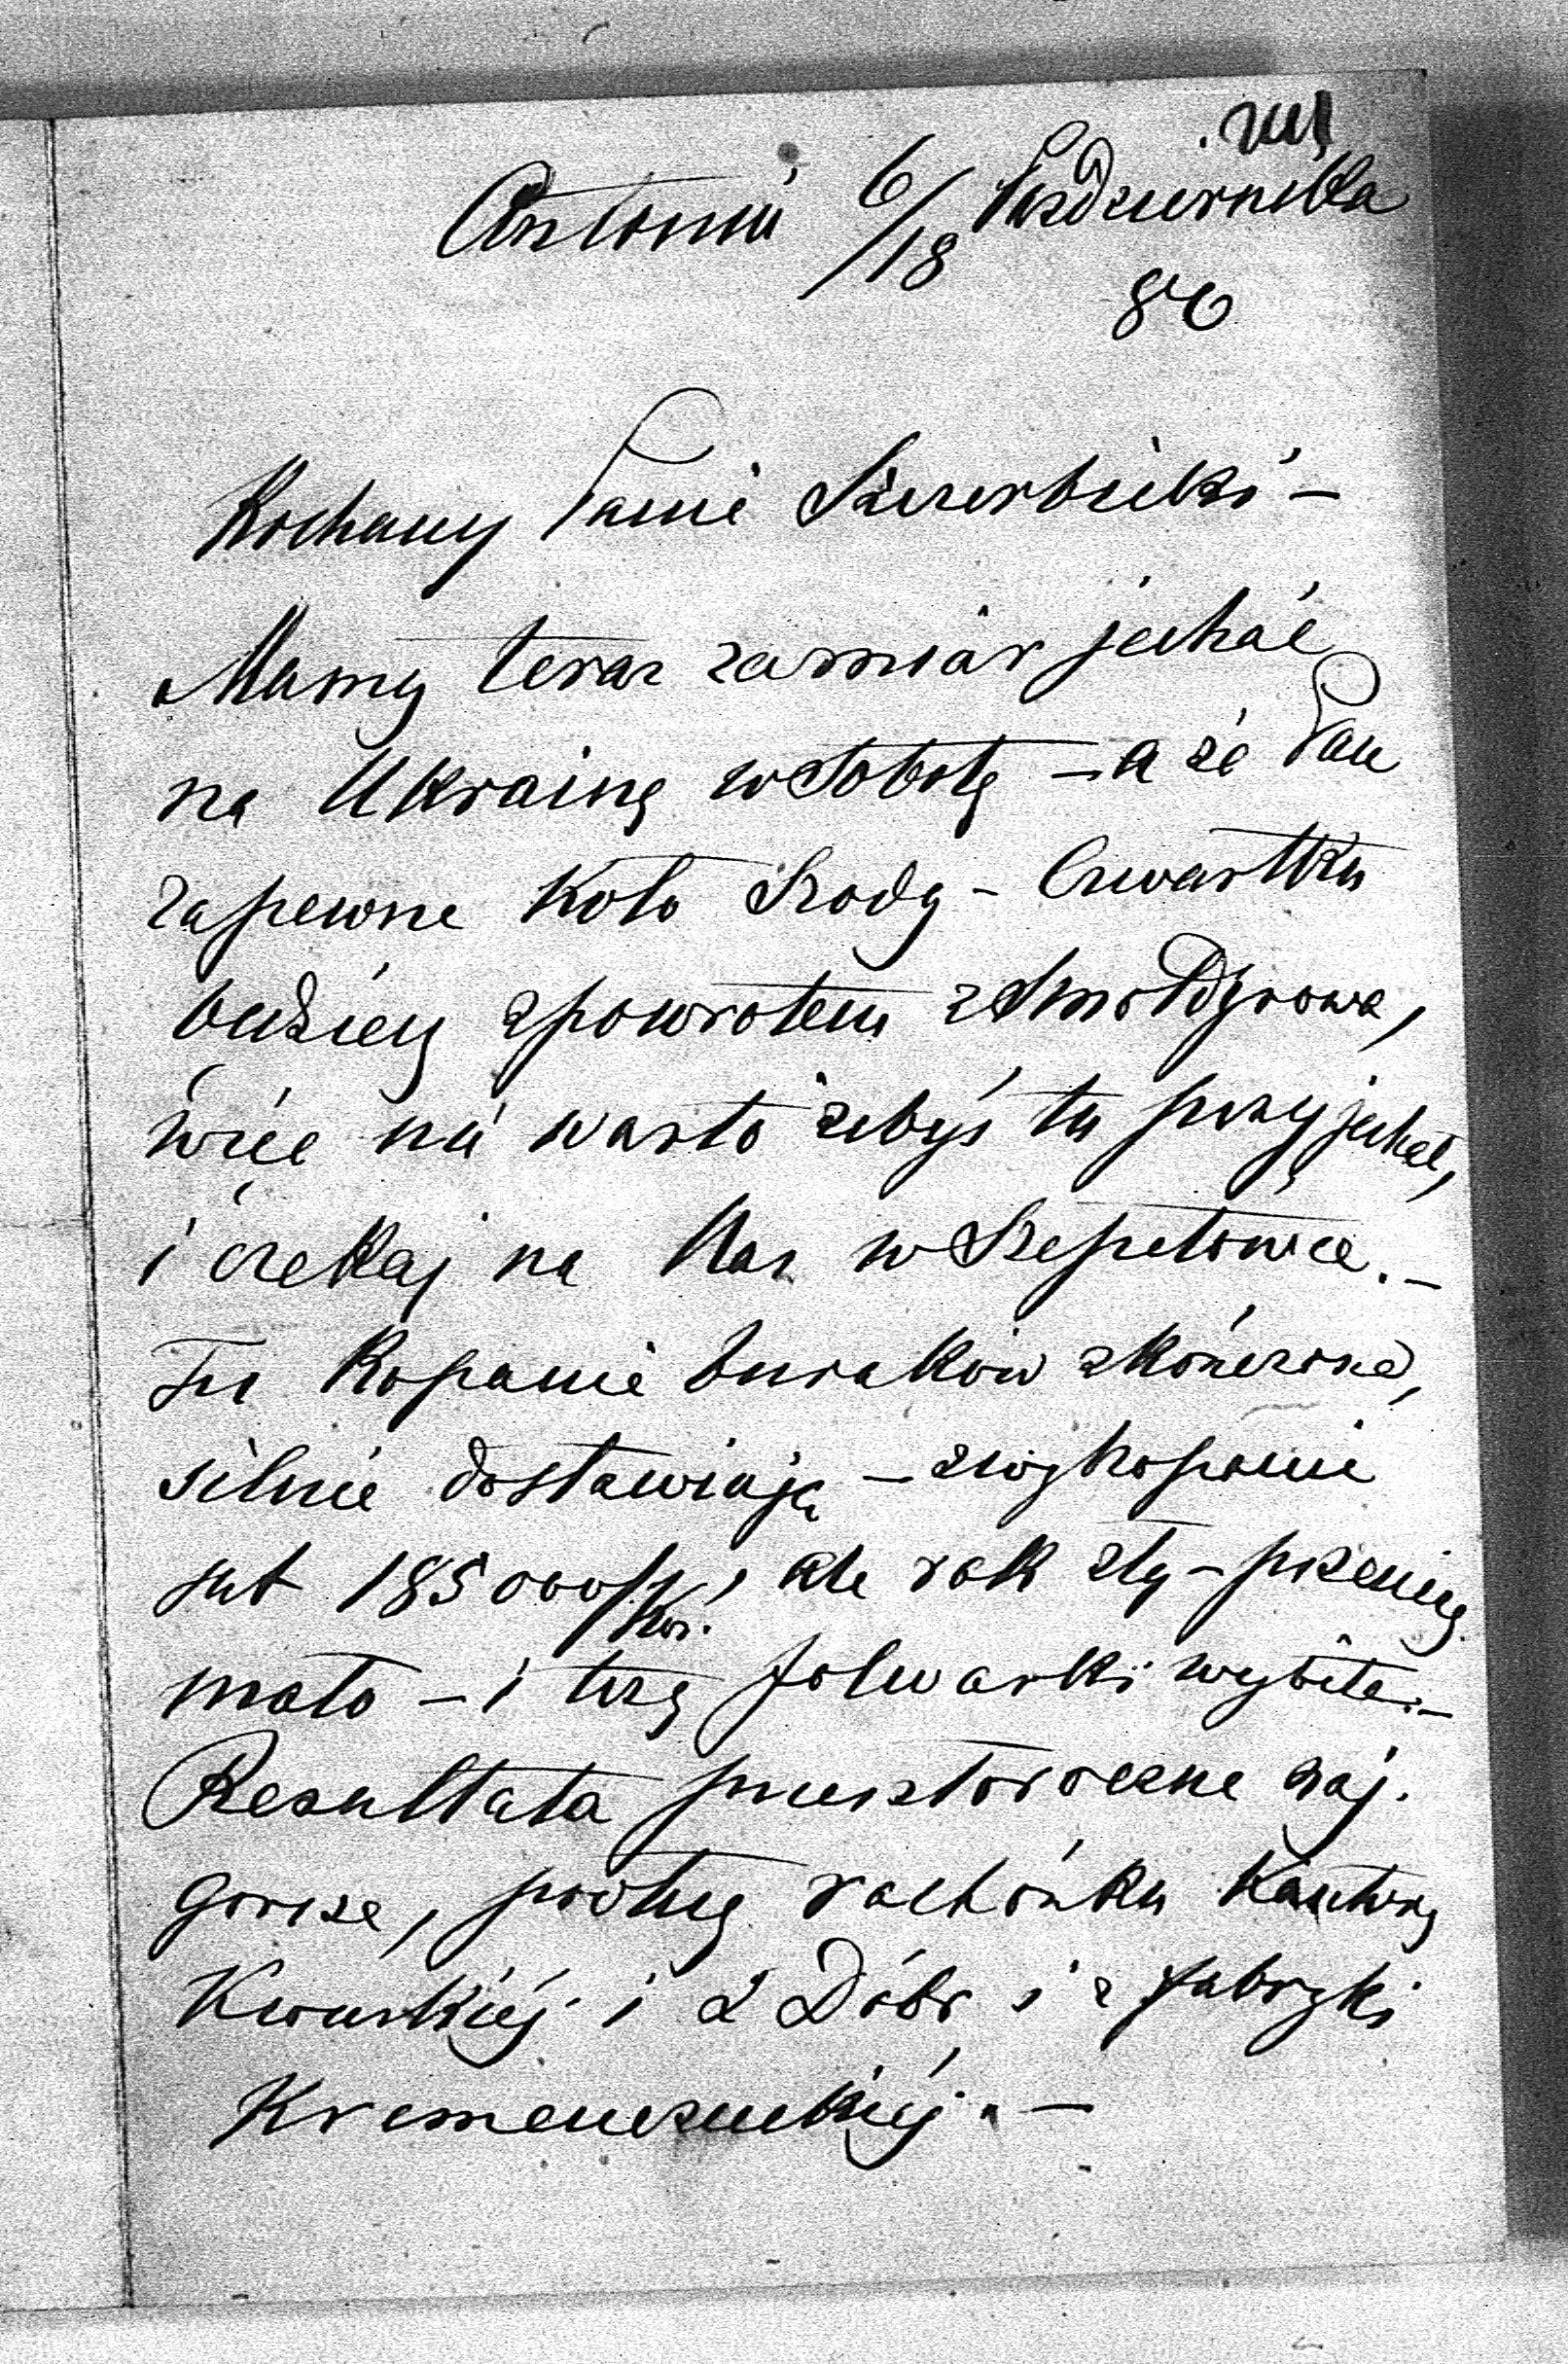 Antonin 6/18 Października
86
Kochany Panie Szczerbicki –
Mamy teraz zamiar jechać
na Ukrainę w Sobotę – a że Pan
zapewne koło Srody – Czwartku
będziesz z powrotem ze Smołdyrowa,
więc nie warto żebyś tu przyjechał,
i czekaj na Nas w Szepetowce. –
Tu Kopanie buraków zkończone,
silnie dostawiają – zwykopanie
sub 185000/kor., ale rok zły – pszenicy
mało – i trzy folwarki wybite. –
Rezultata przeszłoroczne naj.
gorsze, podług rachónku Kantory
Kijowskiéj i z Dóbr i z Fabryki
Kremenczuckiéj. –